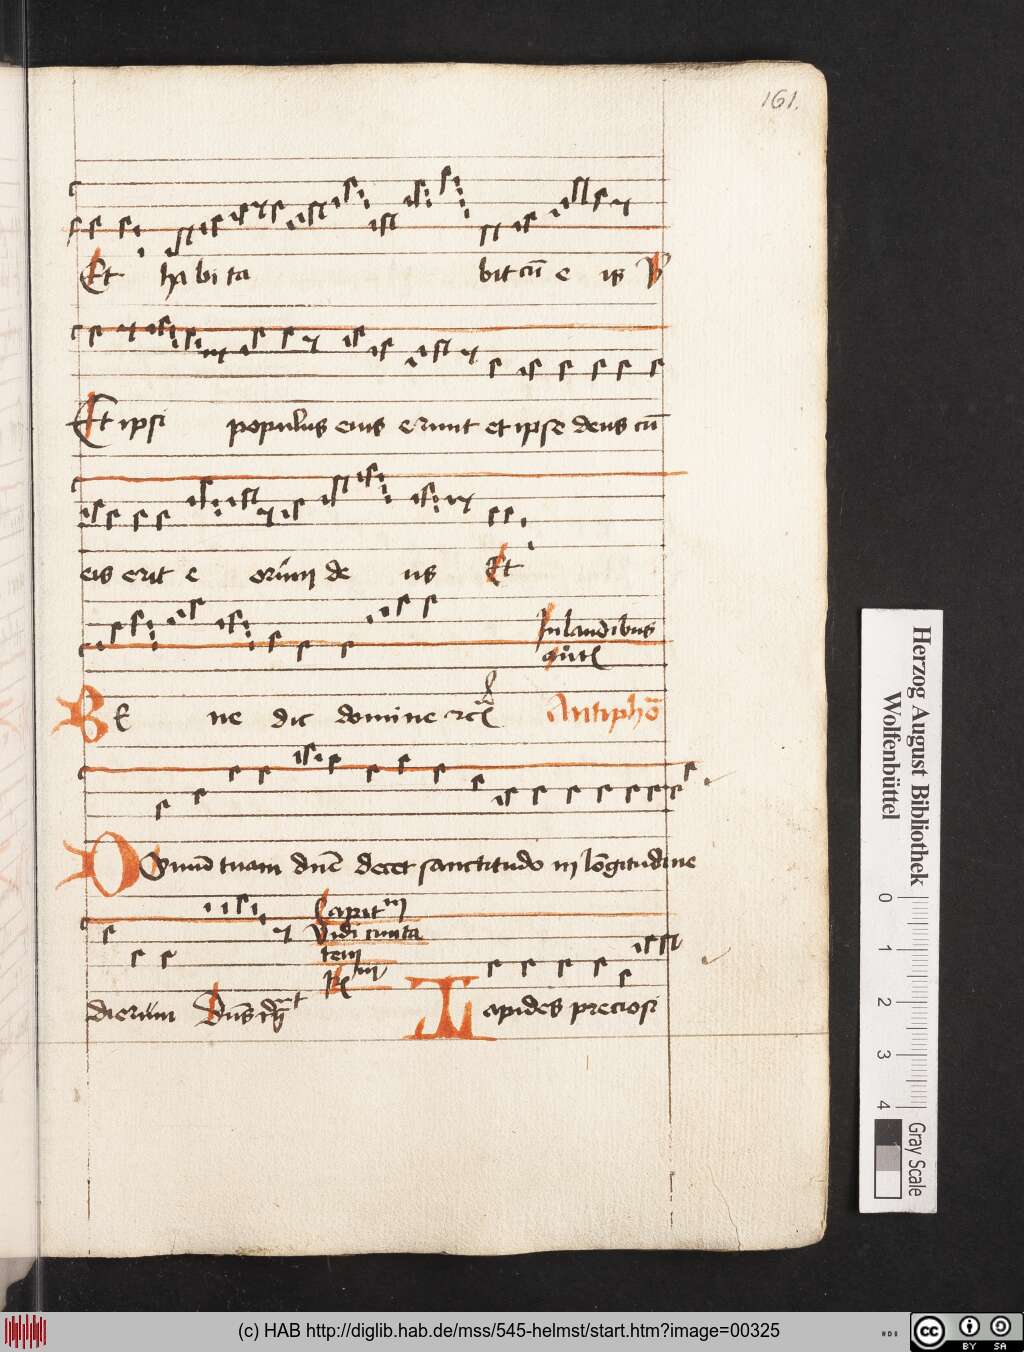 161.
Et ha bi ta bit cū e is
Et ipsi populus eius erunt et ipse deus cū
eis erit e orum de us Et
In laudibus
BE ne dic domine Antiphō
DOmū tuam dnē decet sanctitudo in lōgitudine
Capitm
Vidi ciuita
tem
dierum Lapides preciosi
Herzog August Bibliothek
Wolfenbüttel
0 1 2 3 4
Gray Scale
(c) HAB http://diglib.hab.de/mss/545-helmst/start.htm?image=00325
cc BY SA